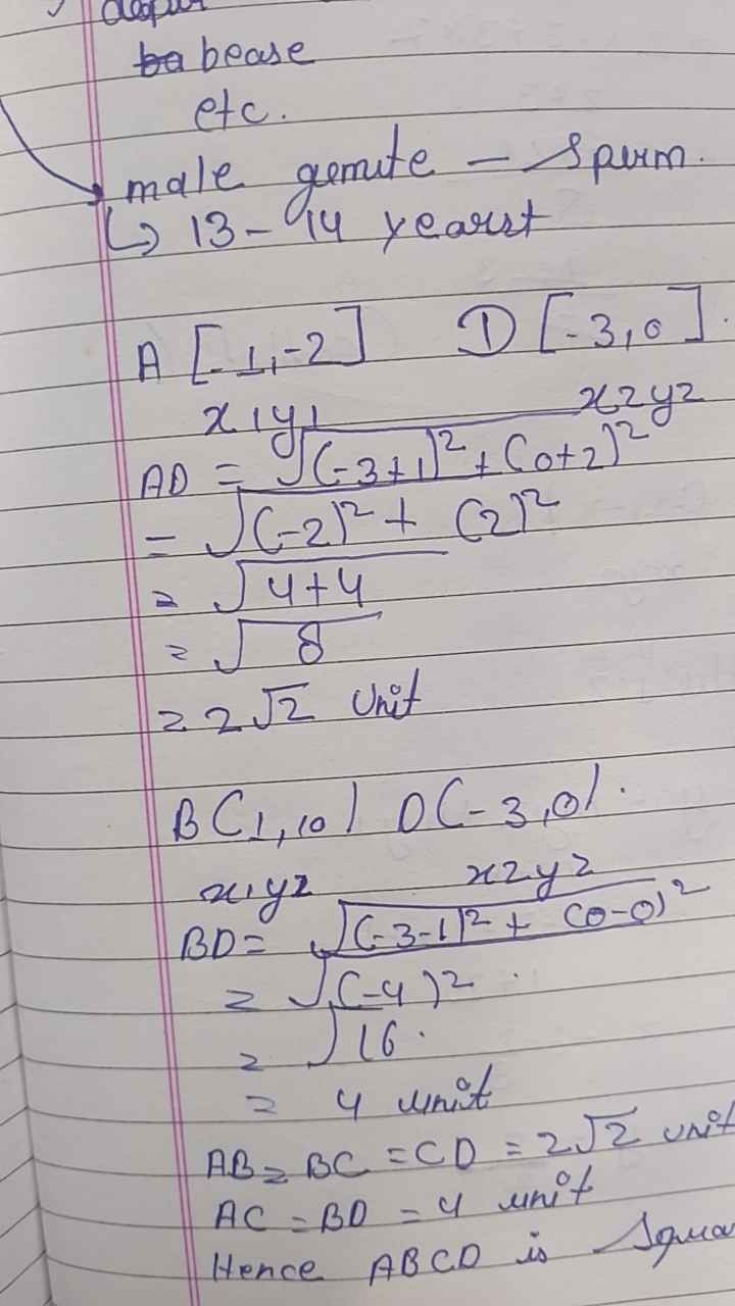 bease
etc.
male gemete - Sperm.
↳ 13-14 yearst
A [-1,-2] D [-3,0].
x1y1 x2y2
AD = √(-3+1)² + (0+2)²
= √(-2)² + (2)²
= √4+4
= √8
= 2√2 Unit
B(1,10) D(-3,0).
x1y2 x2y2
BD = √(-3-1)² + (0-0)²
= √(-4)²
= √16.
= 4 unit
AB = BC = CD = 2√2 unit
AC = BD = 4 unit
Hence ABCD is Squa